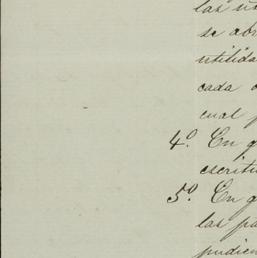 las un
se abr
utilida
cada o
cual p
4.º En q
escritu
5.º En q
las pa
pudien